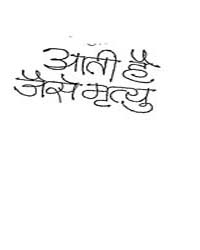 आती है
जैसे मृत्यु